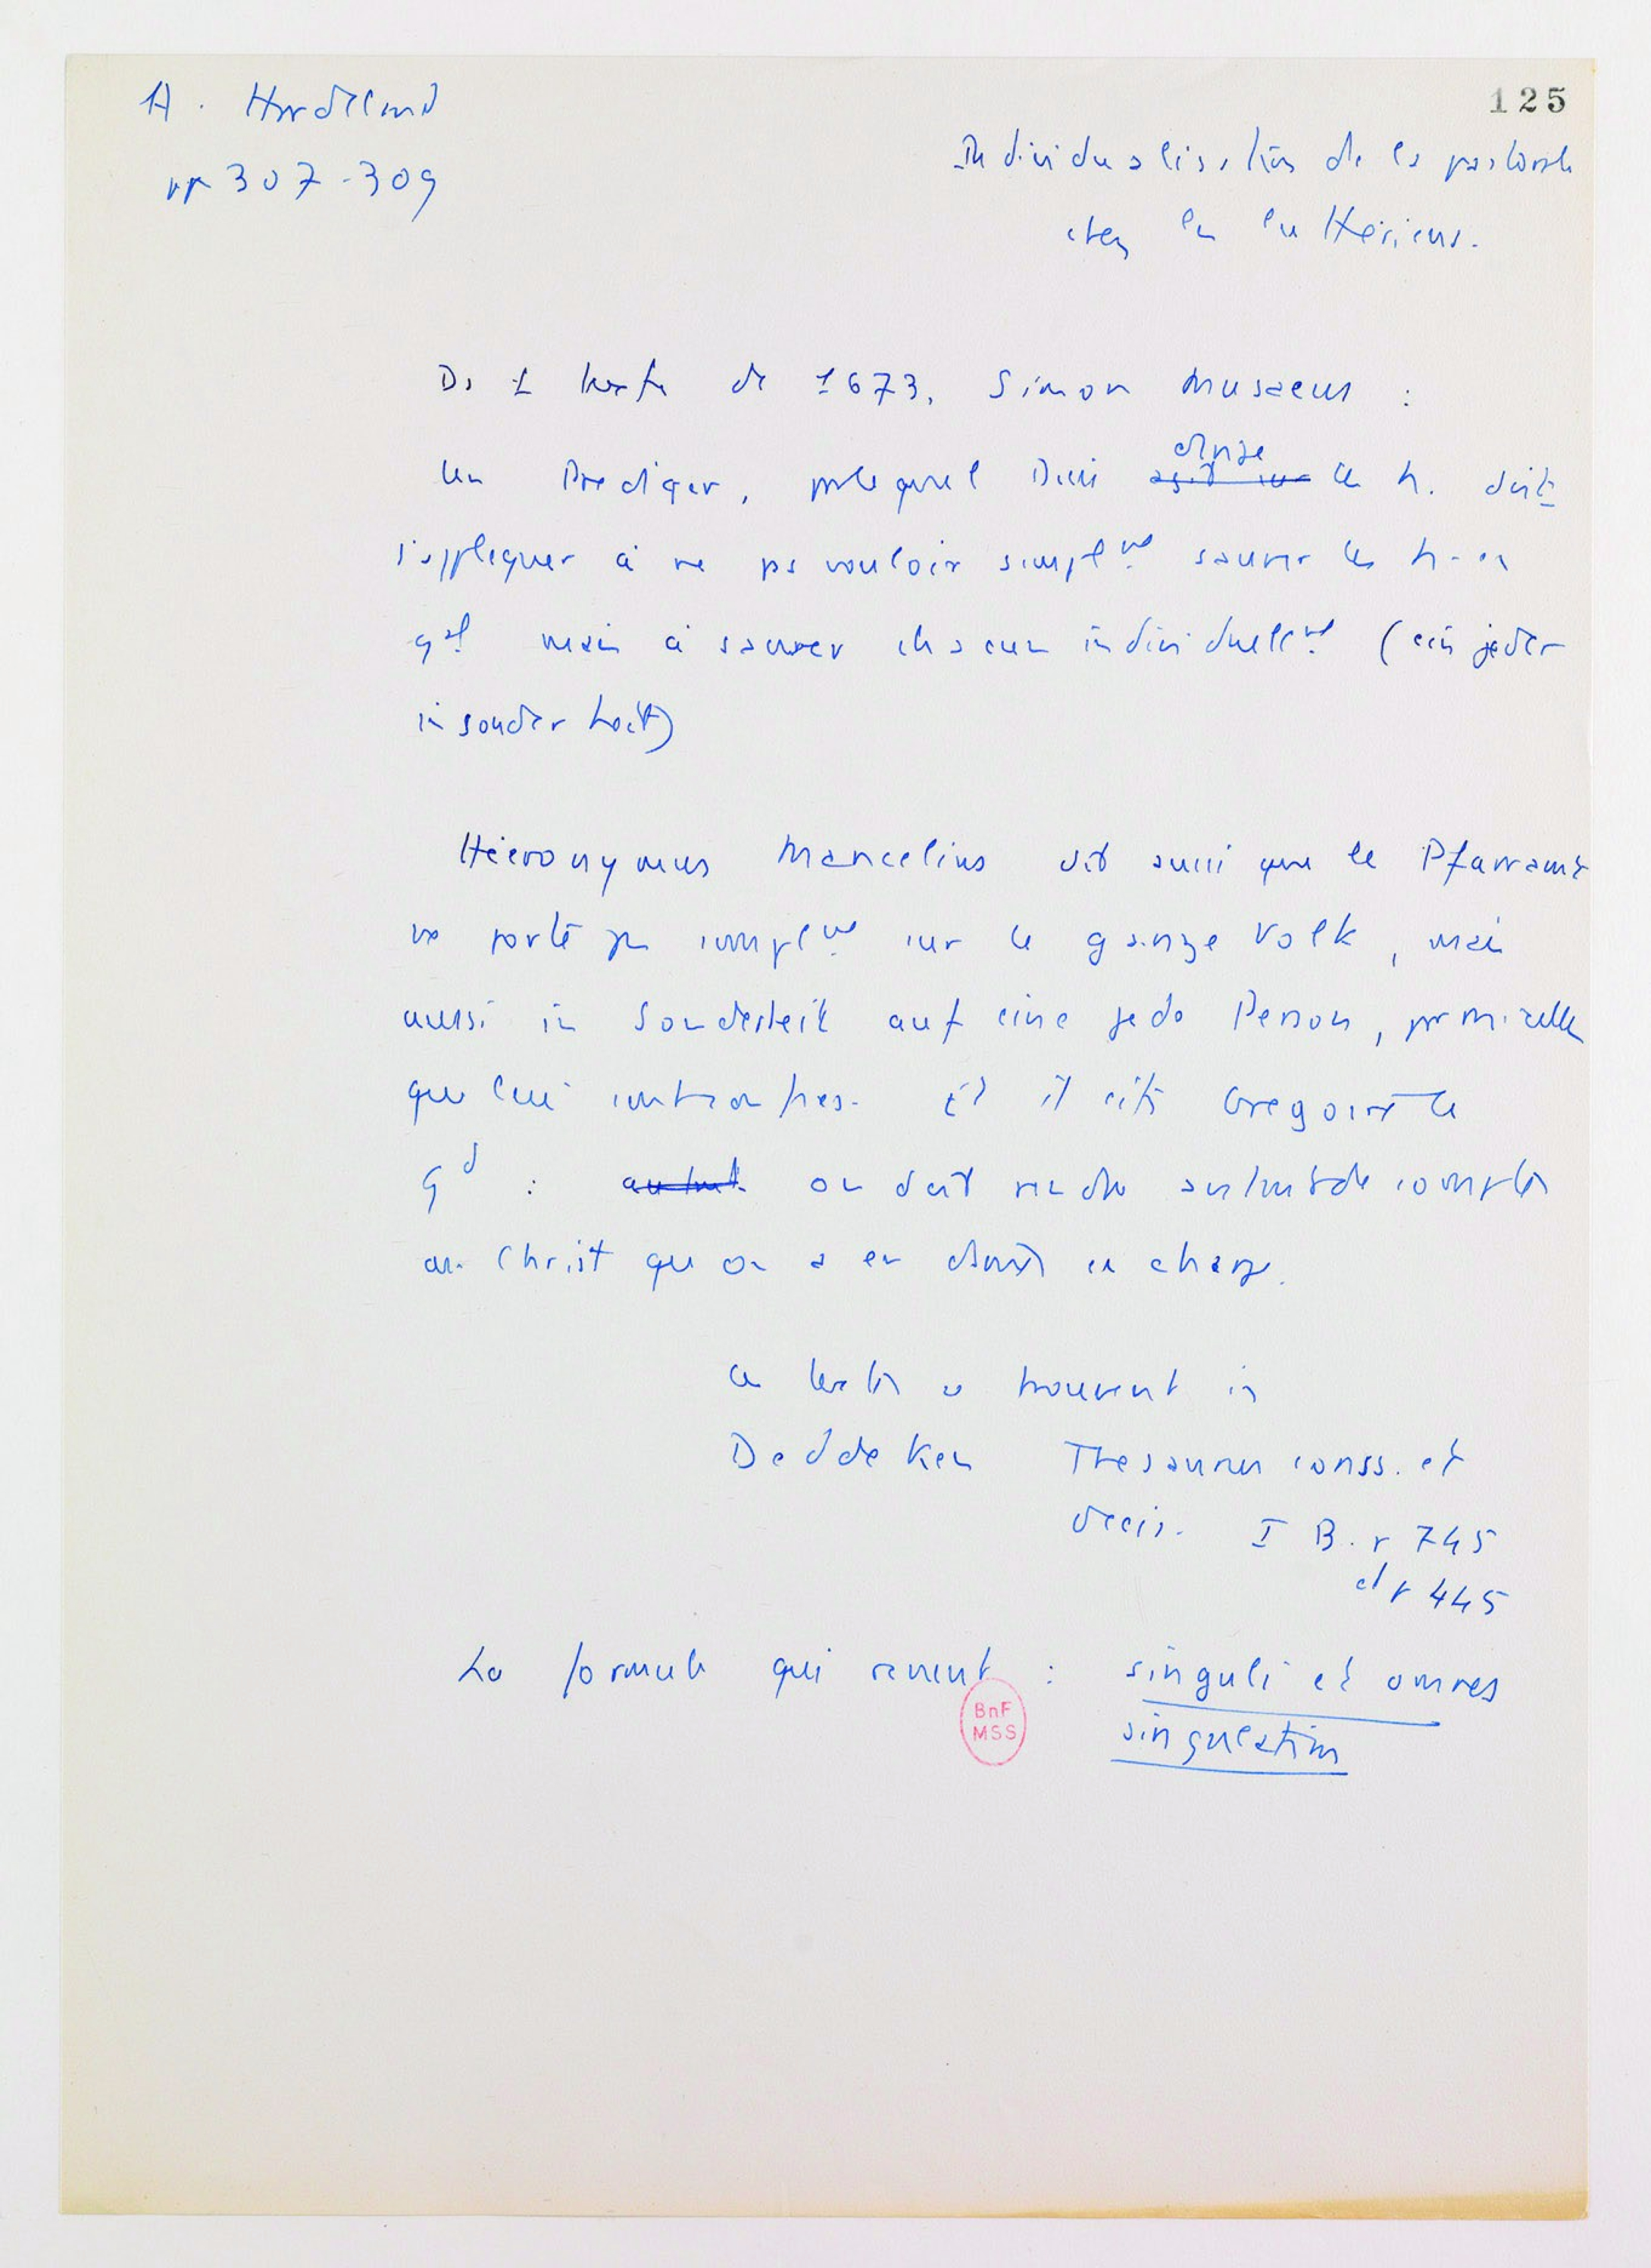 A. Hardeland
pp 307-309
125
Individualisation de la pastorale
chez les luthériens.
Ds 1 texte de 1673, Simon Musaeus :
Un Prediger, par lequel Dieu agit sur le h. doit
change
s'appliquer à ne pas vouloir simplt sauver les h. en
gal mais à sauver chacun individuellt (ein jeder
insonderheit)
Hieronymus Mancelius dit aussi que le Pfarramt
ne porte pas simplt sur le ganze Volk, mais
aussi in Sonderheit auf eine jede Person,
que lui Et il cite Gregoire le
Gd : autant on doit rendre autant de comptes
au Christ qu'on a en charge.
Ces textes se trouvent in
Dedeken Thesaurus conss. et
decis. I B. p 745
et p 445
La formule qui revient : singuli et omnes
singulatim
BnF
MSS